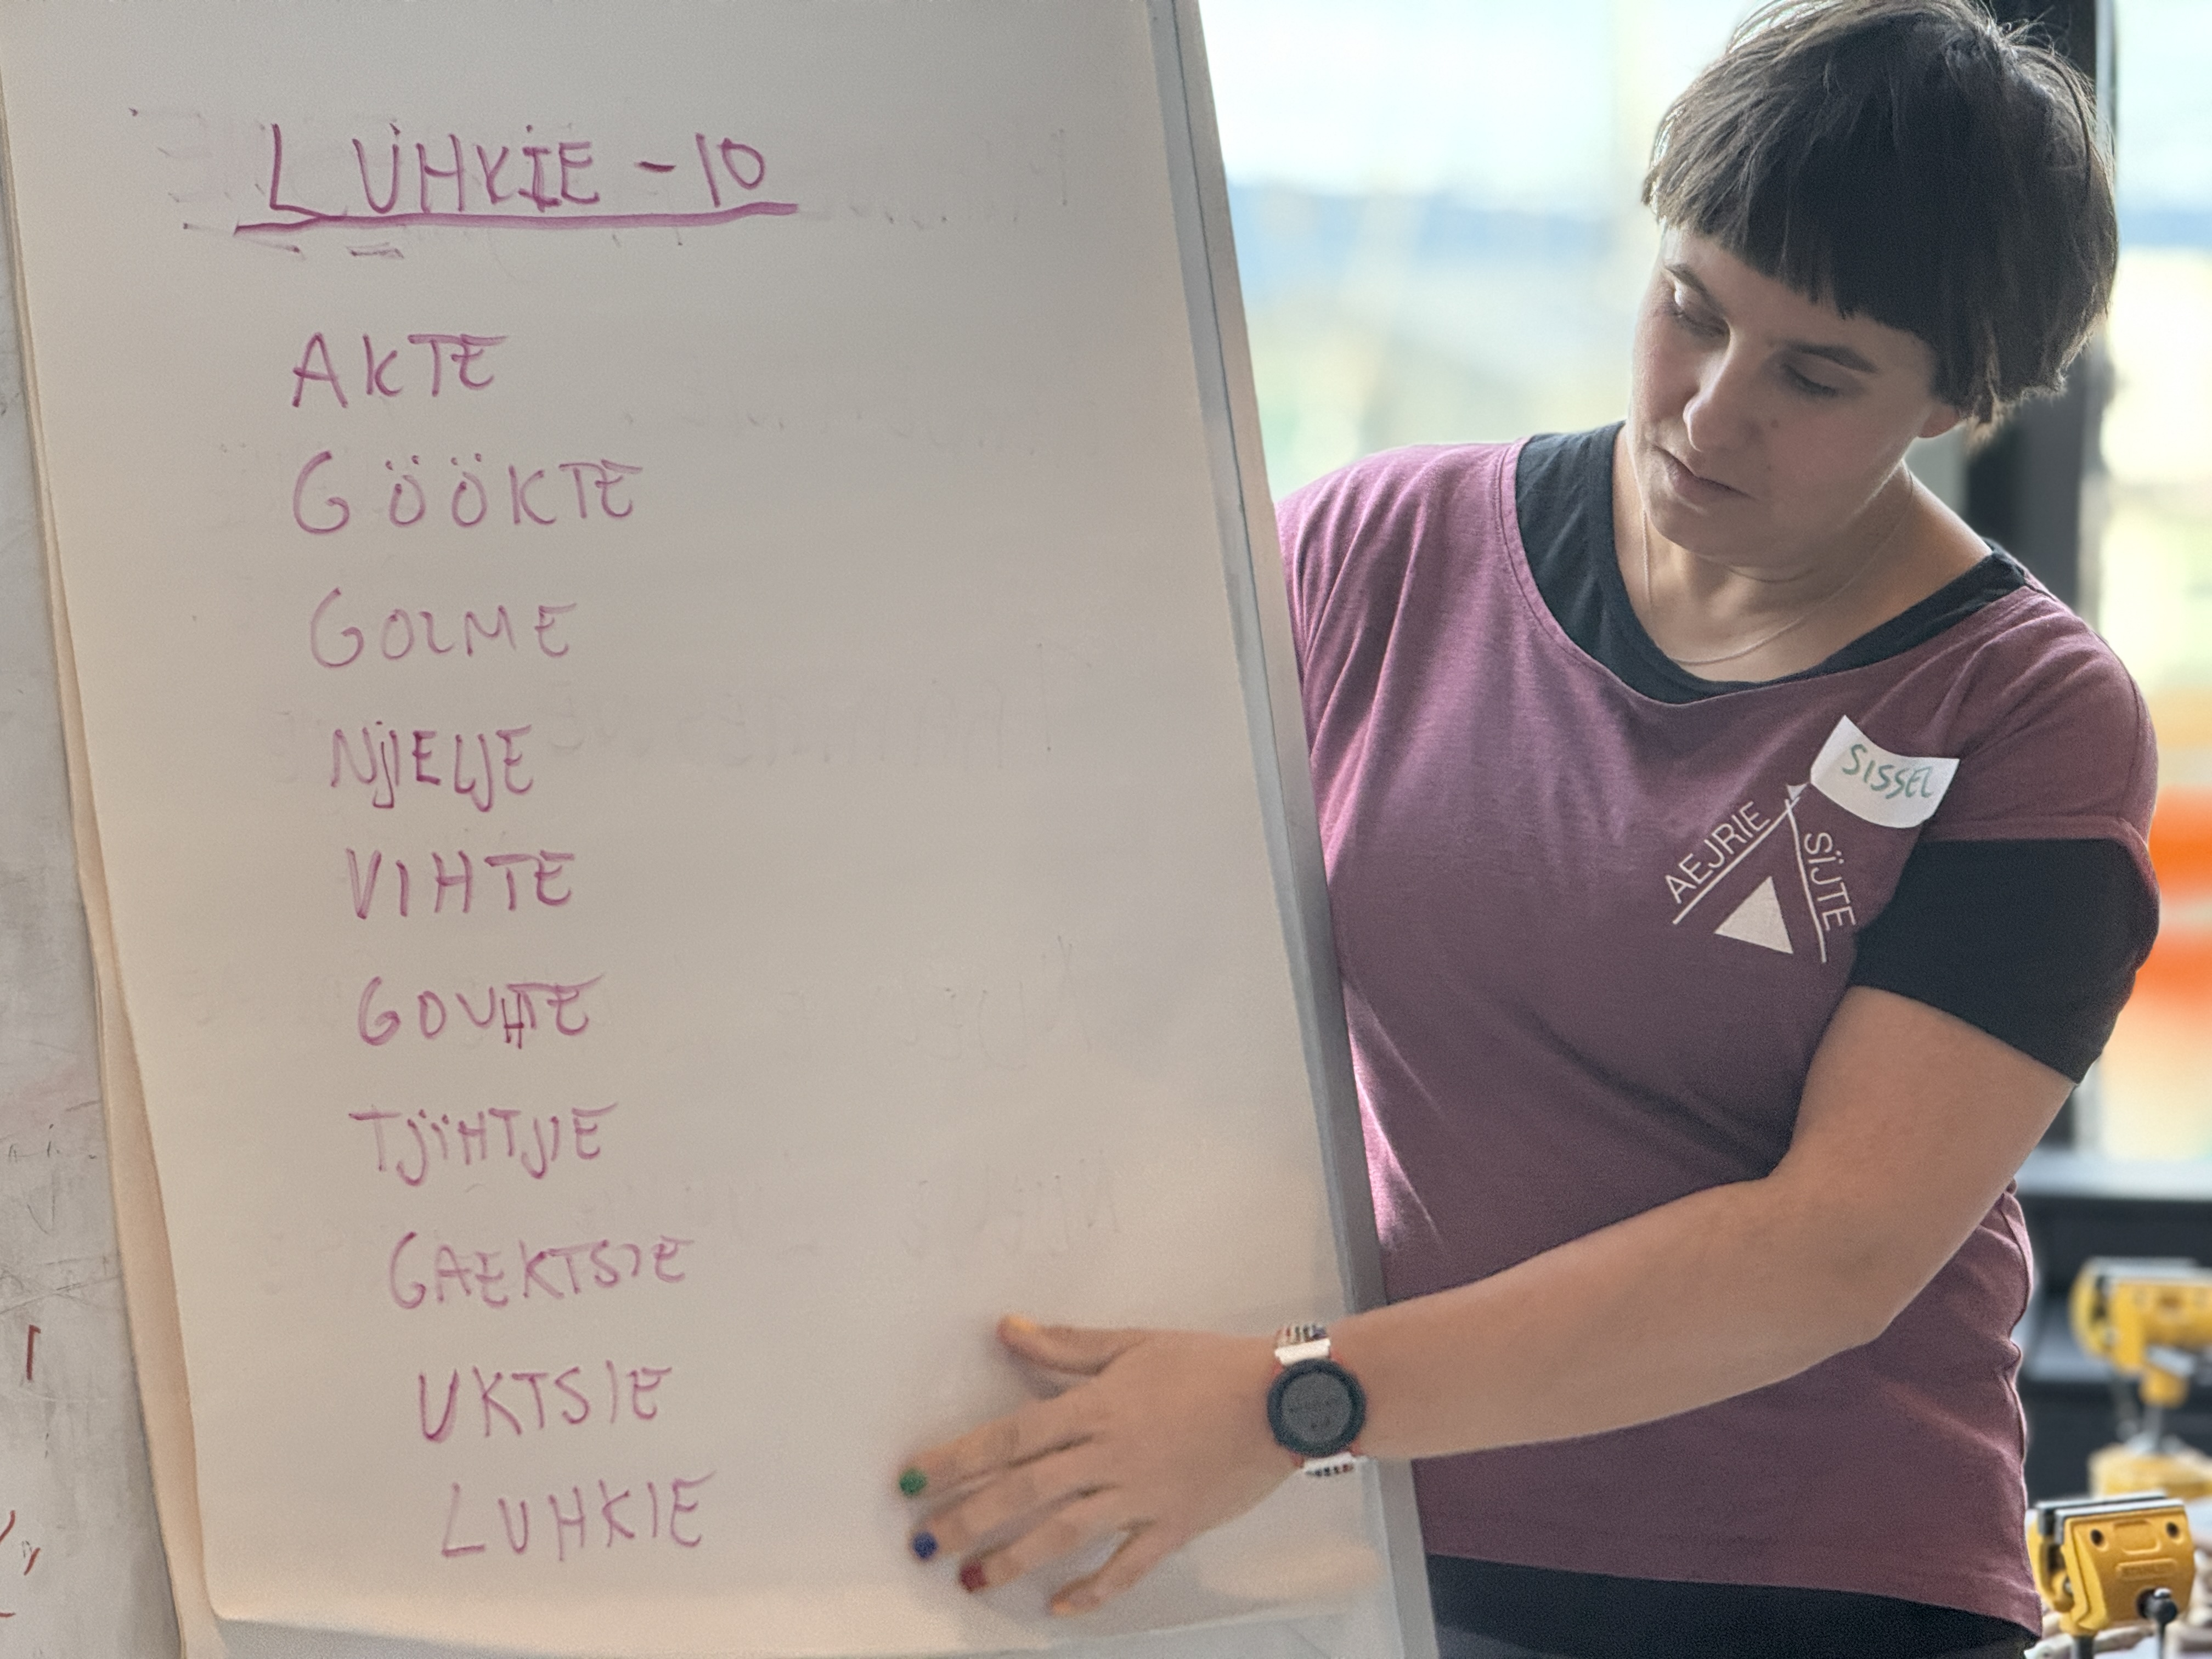 LUHKIE - 10
AKTE
GÖÖKTE
GOLME
NJIELJE
VIHTE
GOVHTE
TJÏHTJIE
GAEKTSIE
UKTSIE
LUHKIE
SISSEL
AEJRIE
SÏJTE